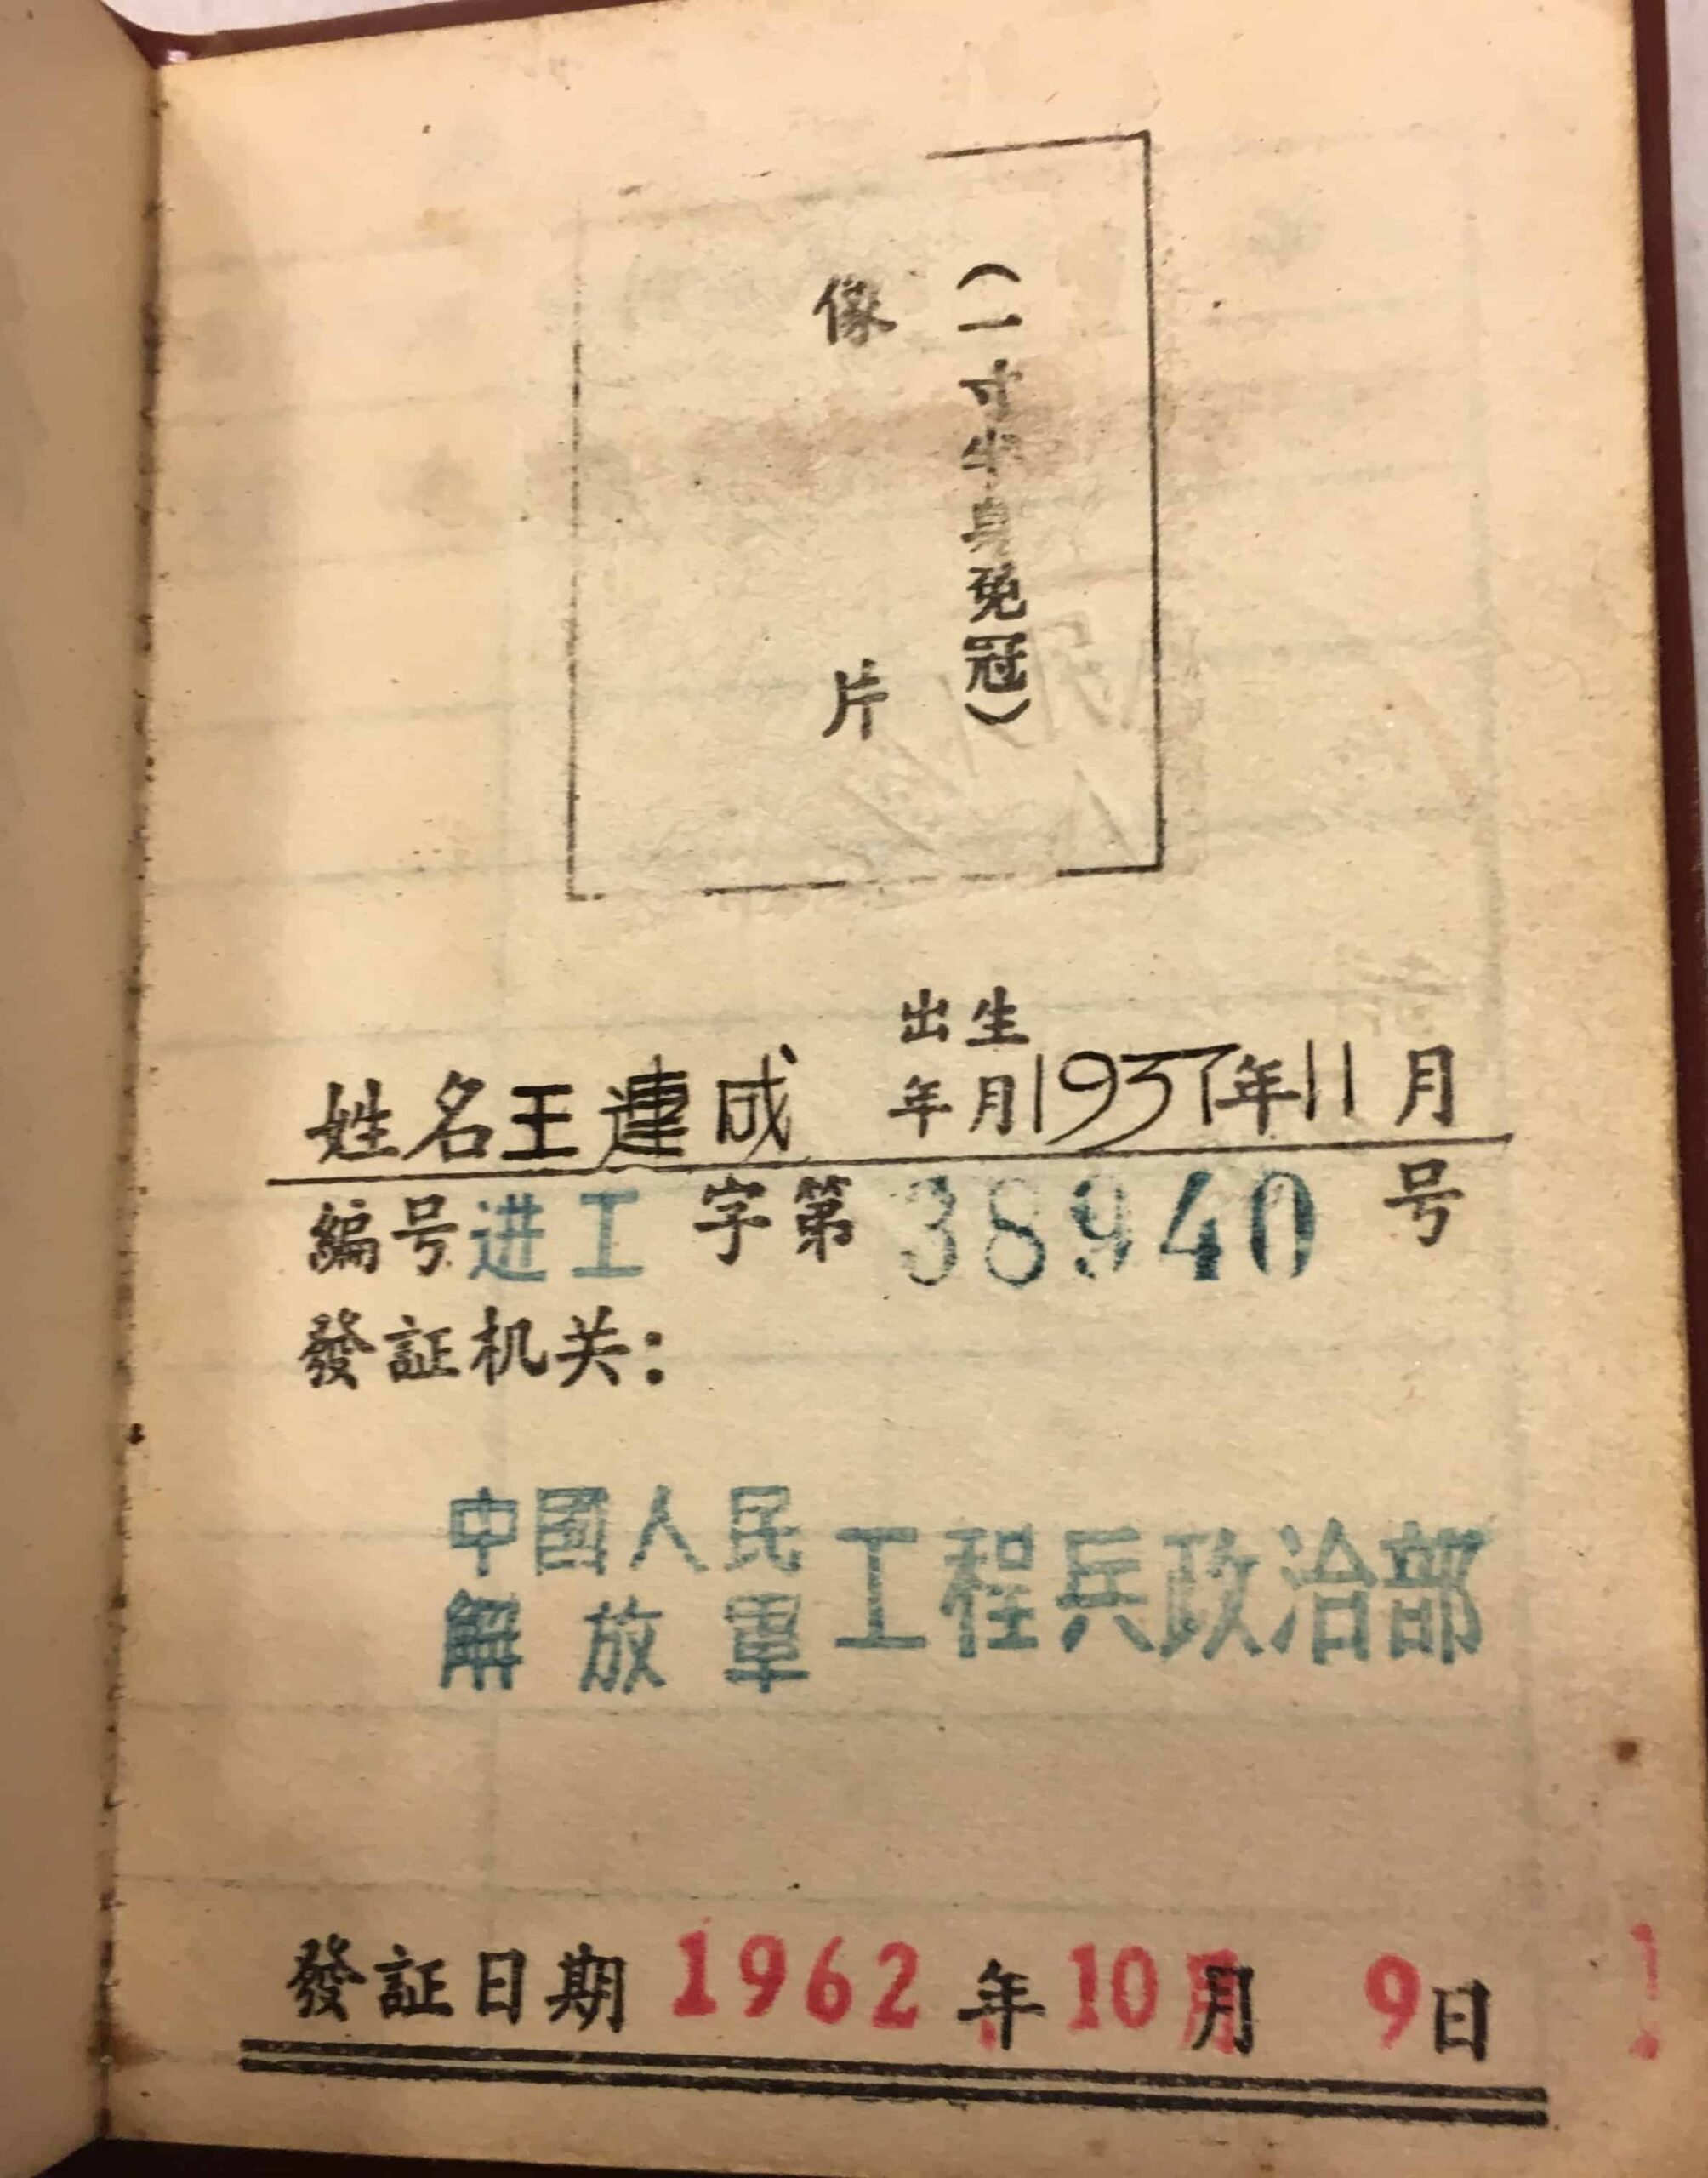 (一寸半身免冠)
像片
出生
姓名王連成 年月1937年11月
編号进工字第38940号
發証机关:
中國人民
解放軍 工程兵政治部
發証日期 1962年10月9日